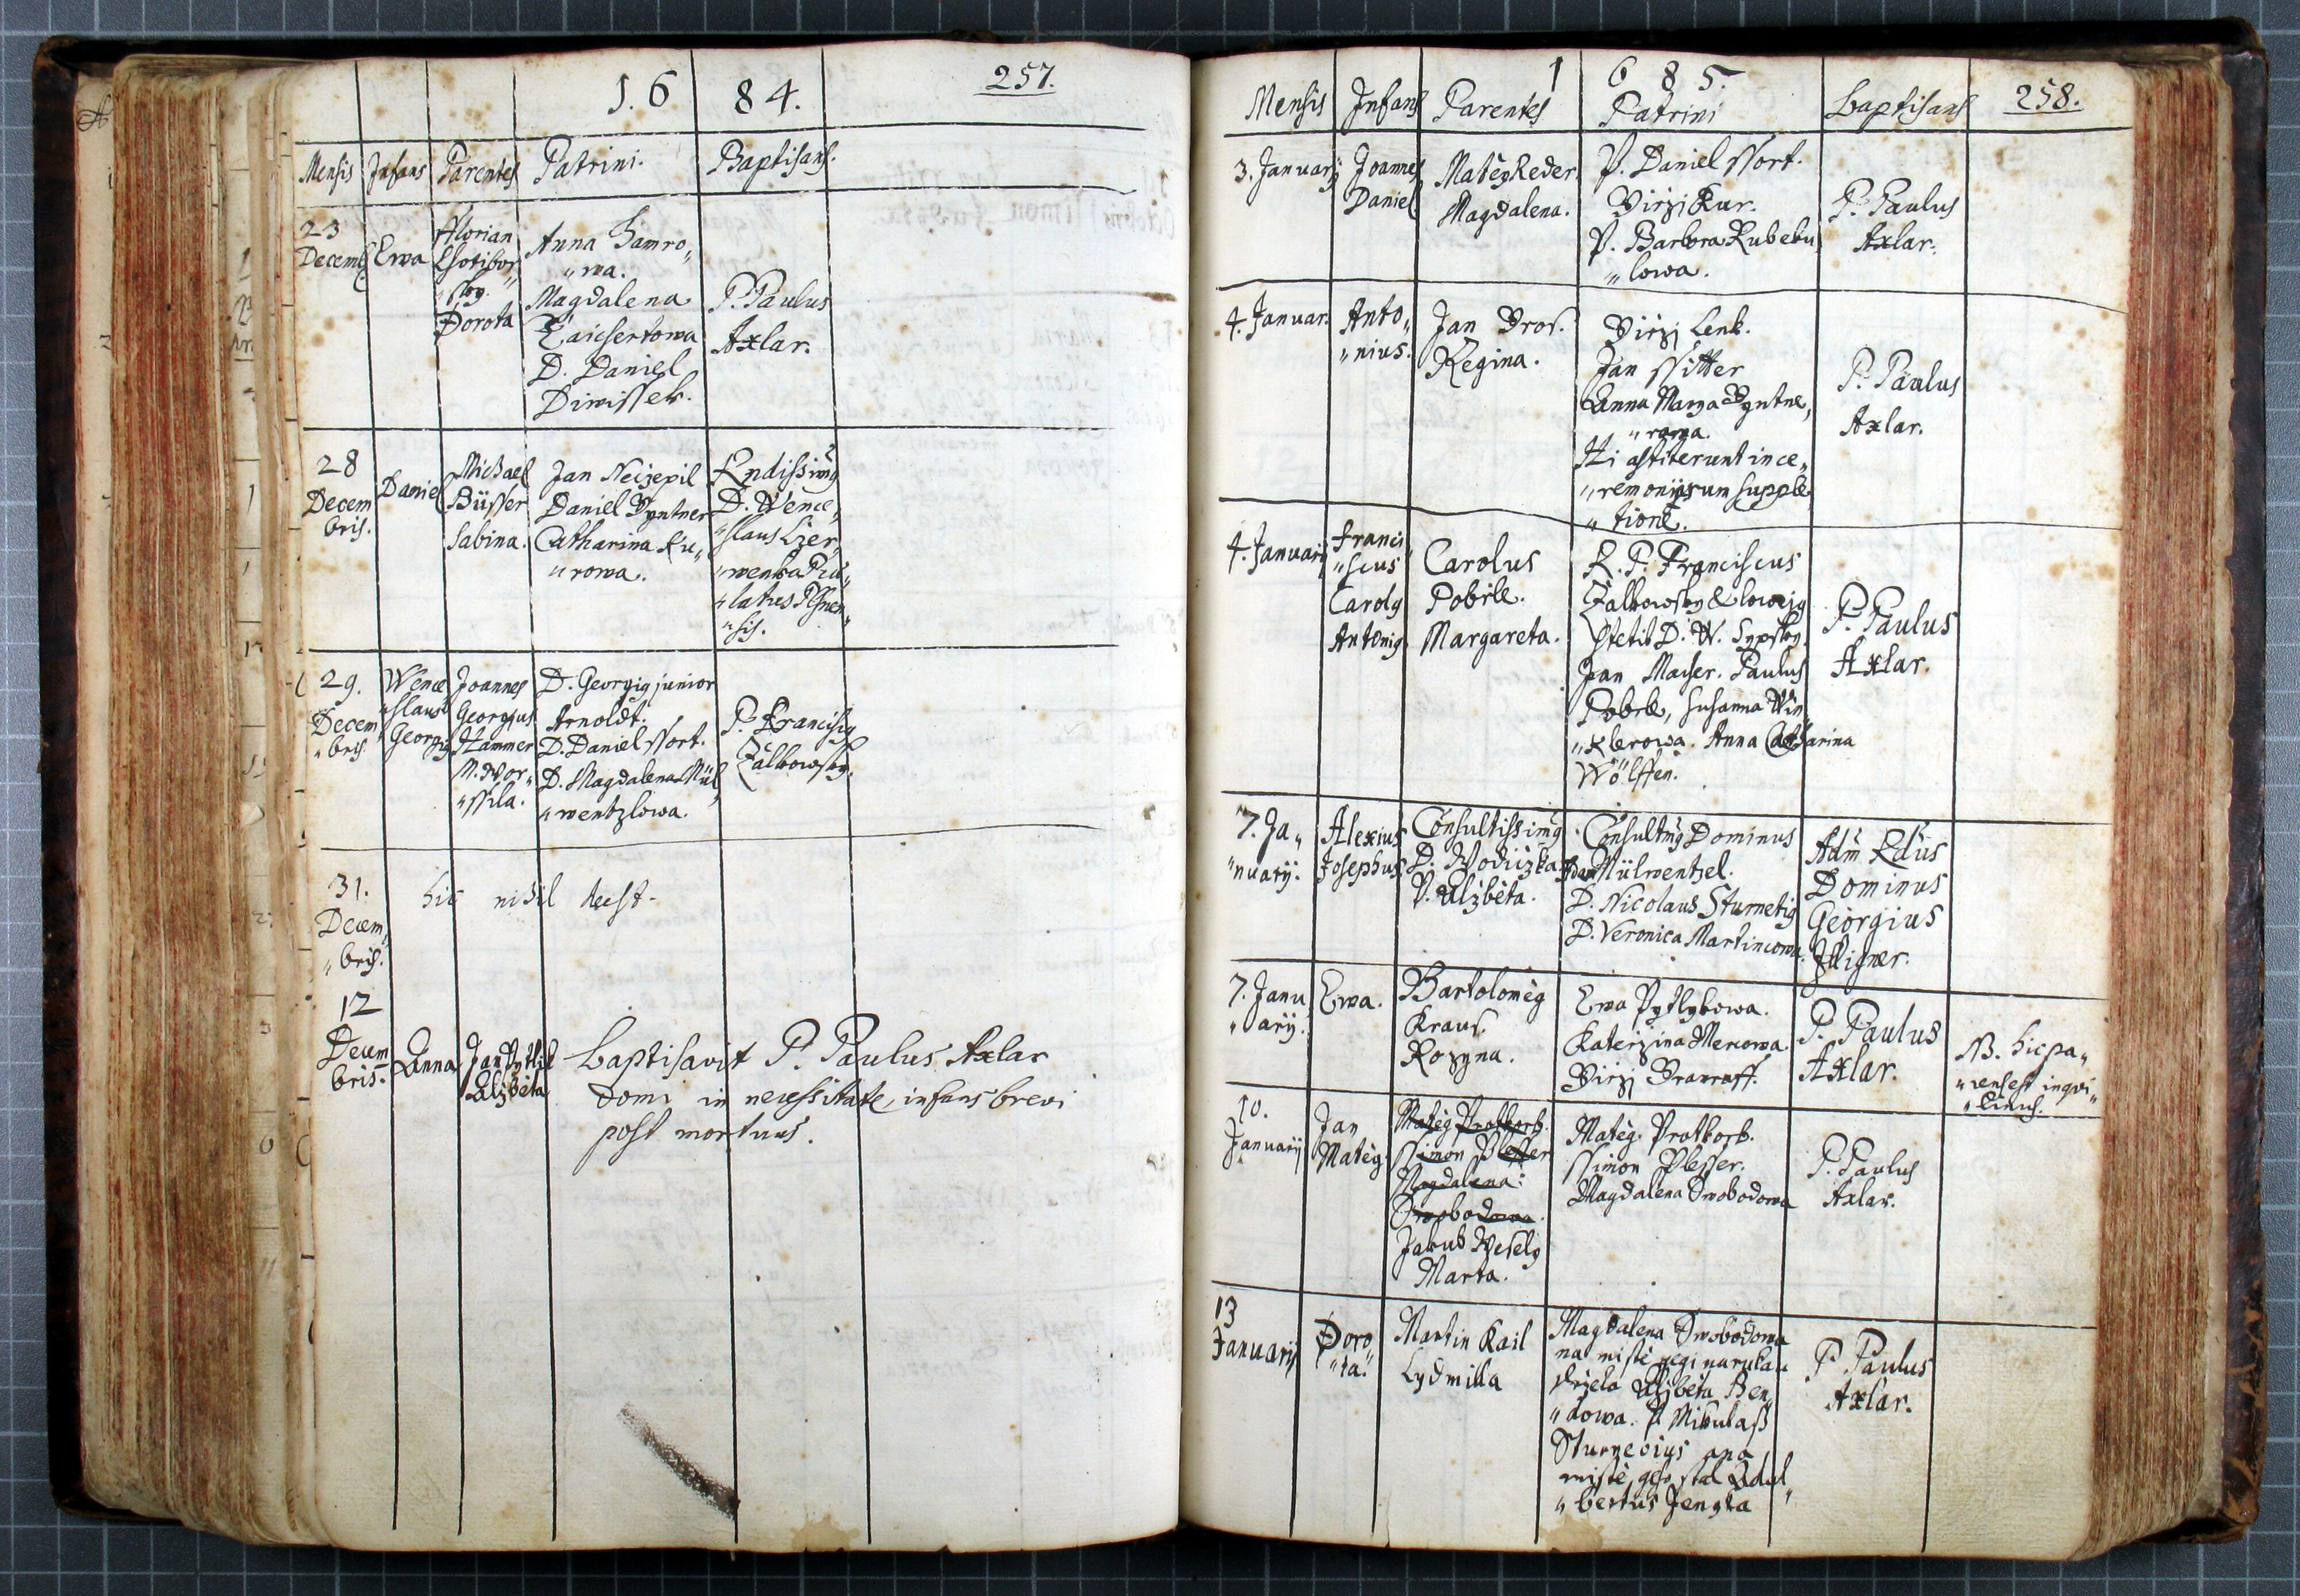 1. 6 84.
257.
Mensis Infans Parentes Patrini. Baptisans.
23
Decemb
Ewa
Florian
Chotibor„
„sky.
Dorota
Anna Hamro„
„wa.
Magdalena
Taichsertowa
D. Daniel
Diwissek.
P. Paulus
Axlar.
28
Decem
bris.
Daniel
Michael
Büsser
Sabina.
Jan Neizepil
Daniel Pyntner
Catharina Ku„
„rowa.
Rndissimg
D. Wence„
„slaus Czer„
„wenka Præ„
„latus Plsnen„
„sis.
29.
Decem
„bris.
Wence
„slaus
Georgig
Joannes
Georgius
Hammer
M. Wor„
„ssila.
D. Georgig junior
Arnoldt.
D. Daniel Ssort.
D. Magdalena Mül„
„wentzlowa.
P. Francisg
Žalkowsky.
31.
Decem„
„bris.
hic nihil deest.
12
Decem
bris.
Anna
Jan Pytlik
Alzběta
baptisavit P. Paulus Axlar
domi in necessitate, infans brevi
post mortuus.
1 6 8 5.
258.
Mensis Infans Parentes Patrini Baptisans
3. Januarij
Joannes
Daniel
Matěg Reder.
Magdalena.
P. Daniel Ssort.
Girzj Kur.
P. Barbora Kubeku„
„lowa.
P. Paulus
Axlar.
4. Januar.
Anto„
„nius.
Jan Bros.
Regina.
Girzj Lenk.
Jan Ssitter
Anna Marya Pyntne„
„rowa.
Hi astiterunt in ce„
„remoniarum supple„
„tione.
P. Paulus
Axlar.
4. Januarij
Francis„
„scus
Carolg
Antonig
Carolus
Pobrle.
Margareta.
R. P. Franciscus
Žalkowsky & loco ejg
stetit D. W. Sypsky.
Jan Macher. Paulus
Pobrle, Susanna Win„
„klerowa. Anna Catharina
Wölffen.
P. Paulus
Axlar.
7. Ja„
„nuarij.
Alexius
Josephus
Consultissimg
D. Wodiczka
P. Alzběta.
Consultmg Dominus
Adam Mülwentzel.
D. Nicolaus Sturnetig
D. Veronica Martincowa.
Adm Rdus
Dominus
Georgius
Filigner.
7. Janu
„arij.
Ewa.
Bartoloměg
Kraus.
Rozyna.
Ewa Pytlykowa.
Katerzina Mercowa.
Girzj Brauroff.
P. Paulus
Axlar.
NB. hic pa„
„rens est inqvi„
„linus.
10.
Januarij
Jan
Matěg.
Matěg Protkorb.
Ssimon Plesser
Magdalena
Swobodowa.
Jakub Wesely
Marta.
Matěg. Protkorb.
Ssimon Plesser.
Magdalena Swobodowa
P. Paulus
Axlar.
13
Januarij
Doro„
„ta.
Martin Kail
Lydmilla
Magdalena Swobodowa
na mistě gegi na rukau
držela Alzběta Ben„
„dowa. P. Mikulass
Sturnecius a na
mistě geho stal Adal„
„bertus Jengka
P. Paulus
Axlar.